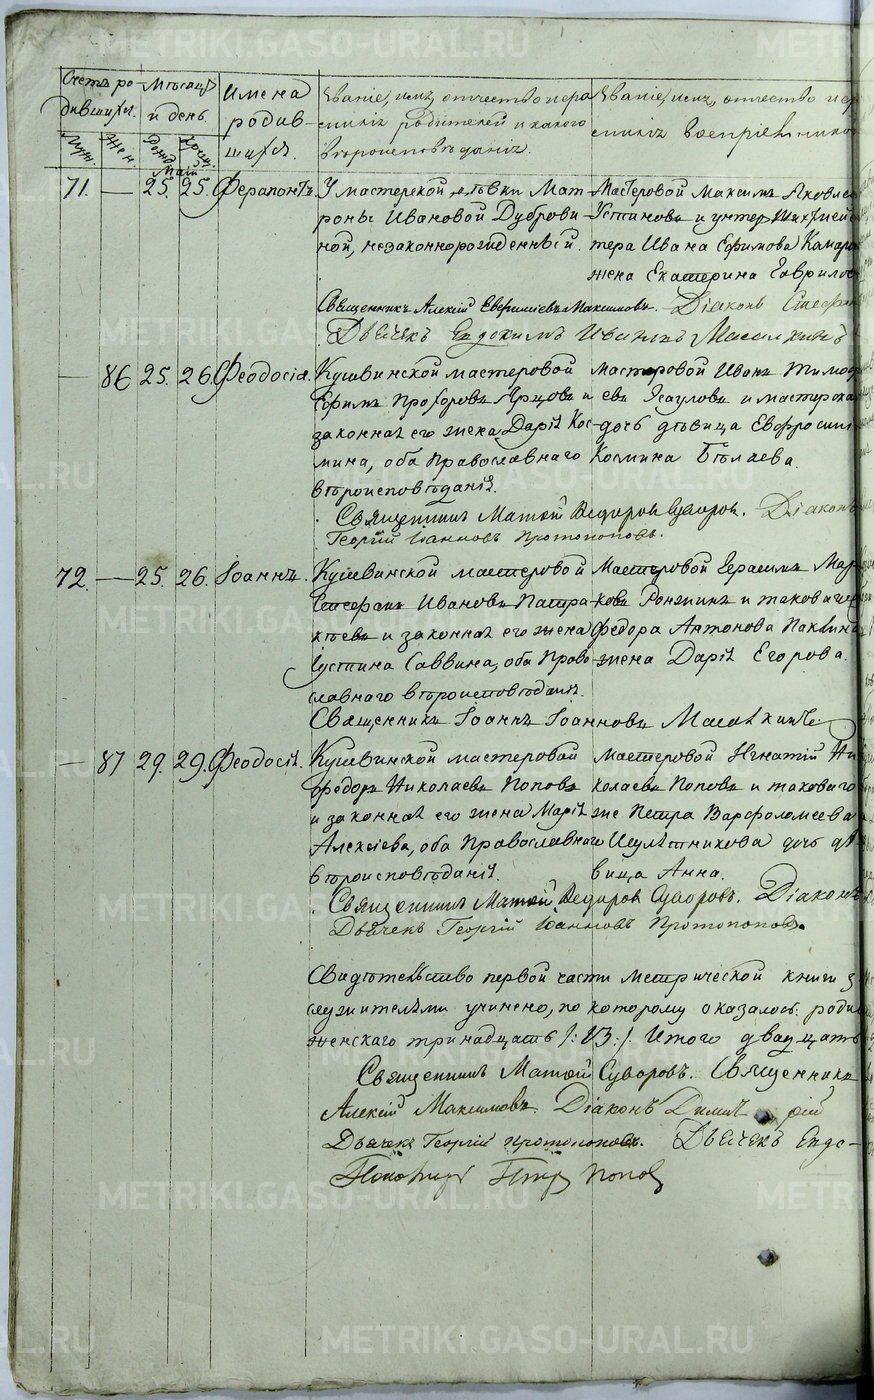 METRIKI.GASO-URAL.RU
Счетъ ро-
дившихся.
Муж.
Жен.
Мѣсяцъ
и день.
Рожд.
Крещ.
Имена
родив-
шихся.
Званіе, имя, отчество и
родителей и какого
вѣроисповѣданія.
Званіе, имя, отчество и
воспріемниковъ
Май
71. — 25. 25. Ферапонтъ.
У мастерской дѣвки Мат-
роны Ивановой Дуброви-
ной, незаконнорожденный.
Мастеровой Максимъ Яковлев
Устиновъ и унтеръ шихтмей
тера Ивана Ефимова
жена Екатерина Гаврилов
Священникъ Алексій Евфиміевъ Максимовъ. Діаконъ Стефан
Дьячекъ Евдокимъ Ивановъ
— 86 25. 26. Феодосія.
Кушвинской мастеровой
Ефимъ Прохоровъ и
законная его жена Дарія Кос-
мина, оба Православнаго
вѣроисповѣданія.
Мастеровой Иванъ Тимоф
евъ Ясауловъ и мастерска
дочь дѣвица Евфросинія
Космина Бѣляева.
Священникъ Матѳей Ѳедоровъ Суворовъ. Діаконъ
Георгій Іоанновъ Протопоповъ.
72. — 25. 26. Іоаннъ.
Кушвинской мастеровой
Стефанъ Ивановъ Патра-
кѣевъ и законная его жена
Іустина Саввина, оба Право-
славнаго вѣроисповѣданія.
Мастеровой Герасимъ Мар-
ковъ Ронжинъ и таковаго
Федора Антонова
жена Дарія Егорова.
Священникъ Іоаннъ Іоанновъ
— 87 29. 29. Феодосія.
Кушвинской мастеровой
Федоръ Николаевъ Поповъ
и законная его жена Марія
Алексіева, оба Православнаго
вѣроисповѣданія.
Мастеровой Игнатій Ни
колаевъ Поповъ и таковаго
же Петра Варфоломеева
дочь дѣ
вица Анна.
Священникъ Матѳей Ѳедоровъ Суворовъ. Діаконъ
Дьячекъ Георгій Іоанновъ Протопоповъ.
Свидѣтельство первой части Метрической книги з
служителями учинено, по которому оказалось: роди
женскаго тринадцать /:13:/. Итого двадцать
Священникъ Матѳей Суворовъ. Священникъ
Алексій Максимовъ. Діаконъ Димит рій
Дьячекъ Георгій Протопоповъ. Дьячекъ Евдо-
Пономарь Петръ Поповъ